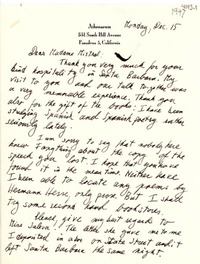 Athenaeum
551 South Hill Avenue
Pasadena 5, California
Monday, Dec. 15
Dear Madame Mistral:
Thank you very much for your
kind hospitality in Santa Barbara. My
visit to you and our talk together was
a very memorable experience. Thank you
also for the gift of the books. I have been
studying Spanish and Spanish poetry rather
seriously lately.
I am sorry to say that nobody here
knew anything about the copy of the
speech you lost. I hope that you have
found it in the mean time. Neither have
I been able to locate any poems by
Hermann Hesse, only prose. But I shall
try some second hand bookstores.
Please give my best regards to
Miss Saleva. The letter she gave me to mail
I deposited in a box on State Street and I
left Santa Barbara the same night.